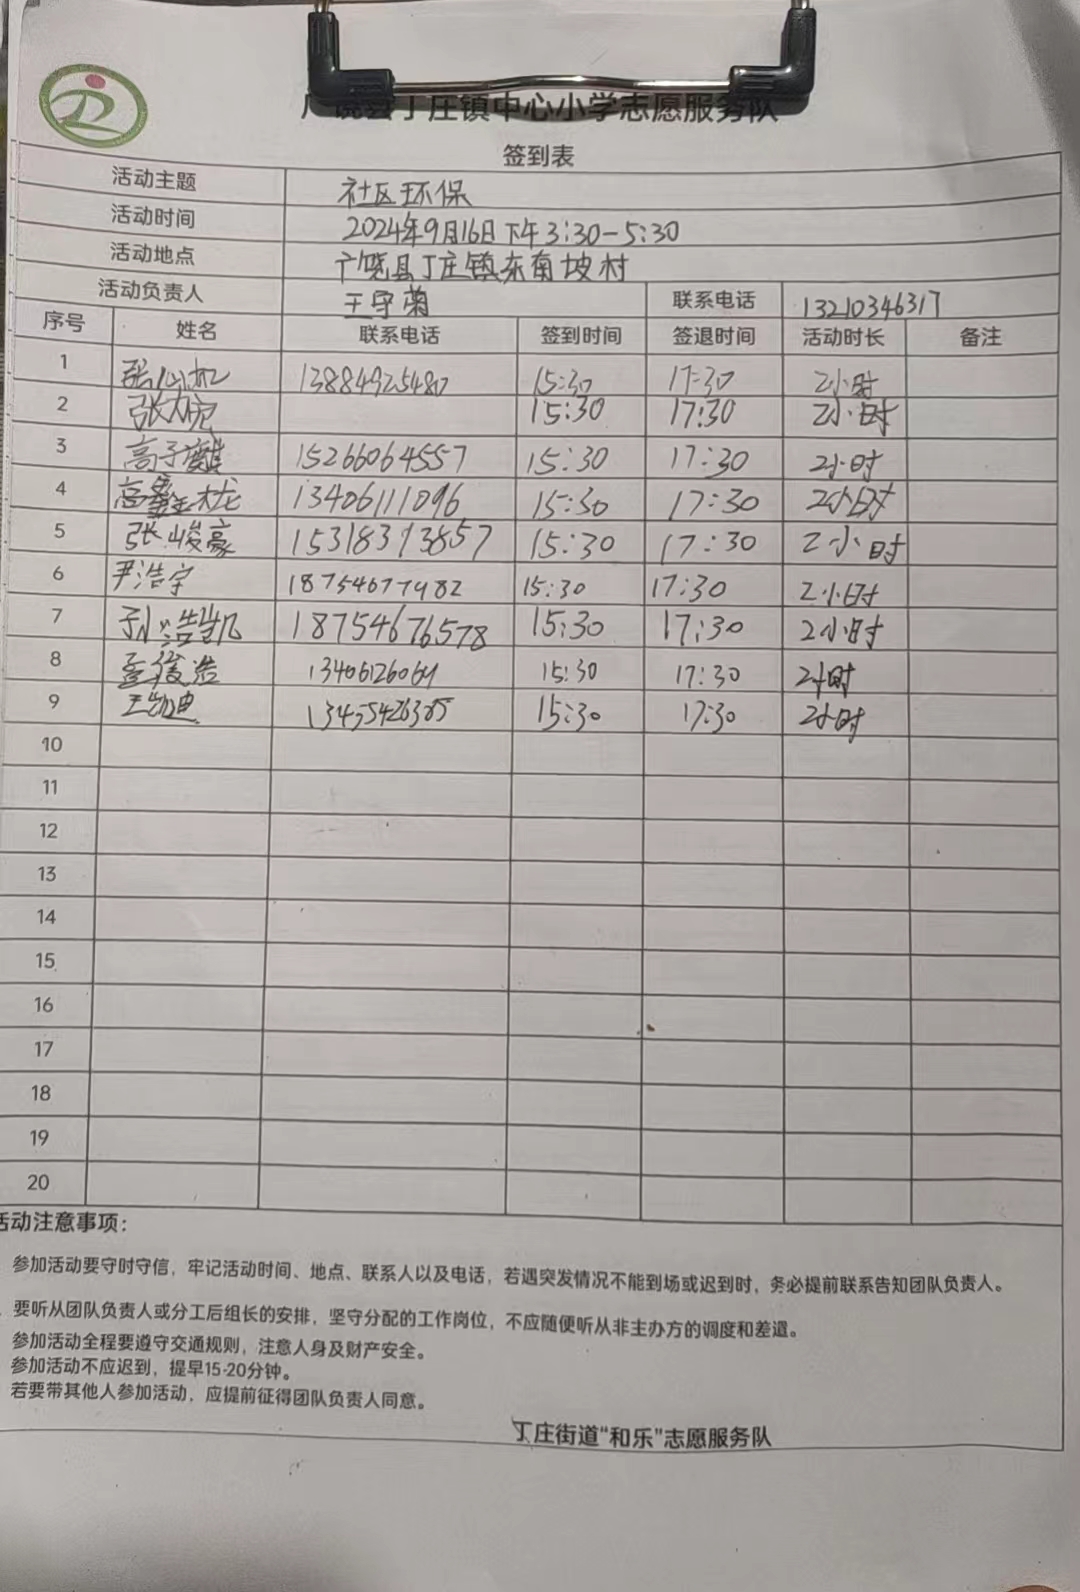 广饶县丁庄镇中心小学志愿服务队
签到表
活动主题 社区环保
活动时间 2024年9月16日下午3:30-5:30
活动地点 广饶县丁庄镇东南坡村
活动负责人 王守菊 联系电话 13210346317
序号 姓名 联系电话 签到时间 签退时间 活动时长 备注
1 13884925480 15:30 17:30 2小时
2 15:30 17:30 2小时
3 高子麒 15266064557 15:30 17:30 2小时
4 高鑫龙 13406111096 15:30 17:30 2小时
5 张峻豪 15318373857 15:30 17:30 2小时
6 尹浩宇 18754677982 15:30 17:30 2小时
7 孙浩凯 18754676578 15:30 17:30 2小时
8 孟俊浩 15:30 17:30 2小时
9 王凯迪 15:30 17:30 2小时
10
11
12
13
14
15
16
17
18
19
20
活动注意事项：
参加活动要守时守信，牢记活动时间、地点、联系人以及电话，若遇突发情况不能到场或迟到时，务必提前联系告知团队负责人。
要听从团队负责人或分工后组长的安排，坚守分配的工作岗位，不应随便听从非主办方的调度和差遣。
参加活动全程要遵守交通规则，注意人身及财产安全。
参加活动不应迟到，提早15-20分钟。
若要带其他人参加活动，应提前征得团队负责人同意。
丁庄街道“和乐”志愿服务队